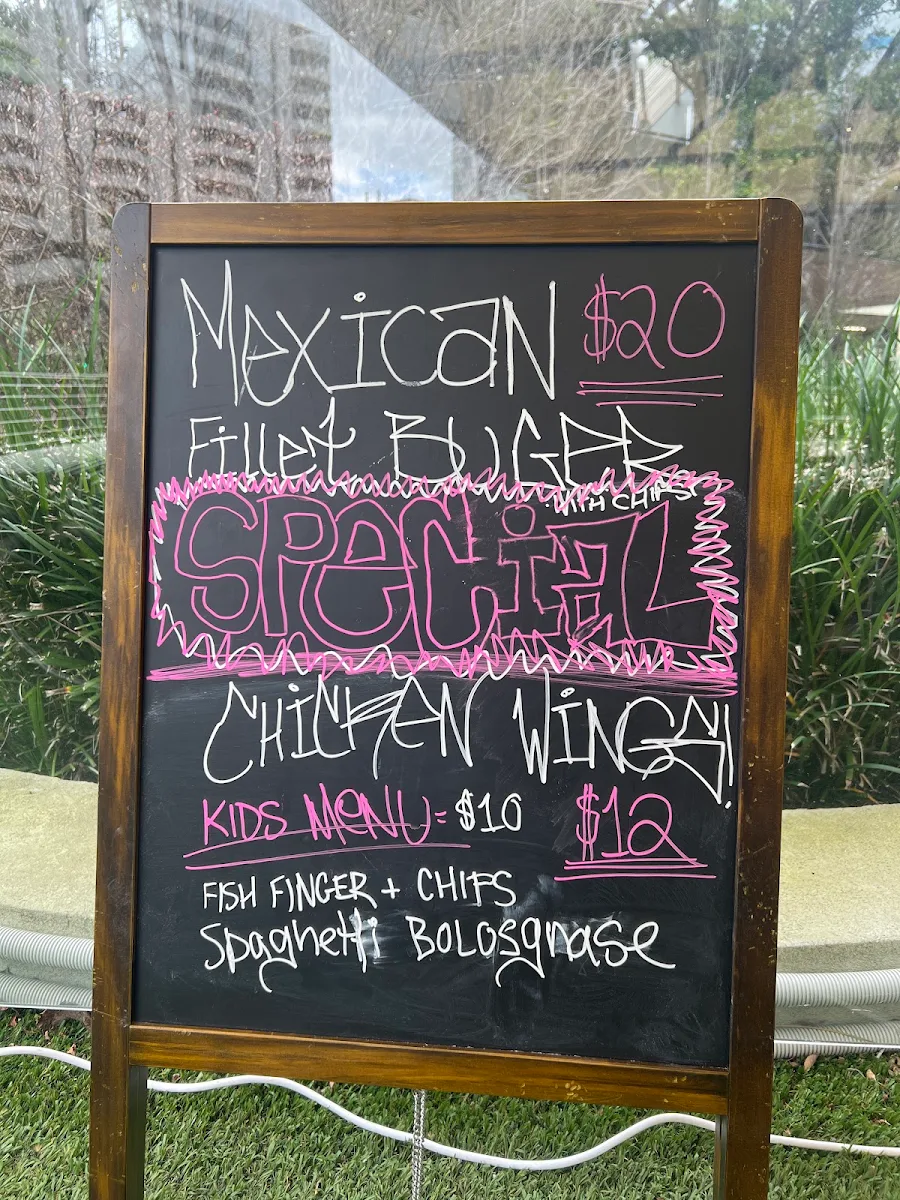 Mexican $20
Fillet BUGER
WITH CHIPS
SPECIAL
CHICKEN WINGS!
KIDS MENU = $10 $12
FISH FINGER + CHIPS
Spaghetti BOLOSgnase